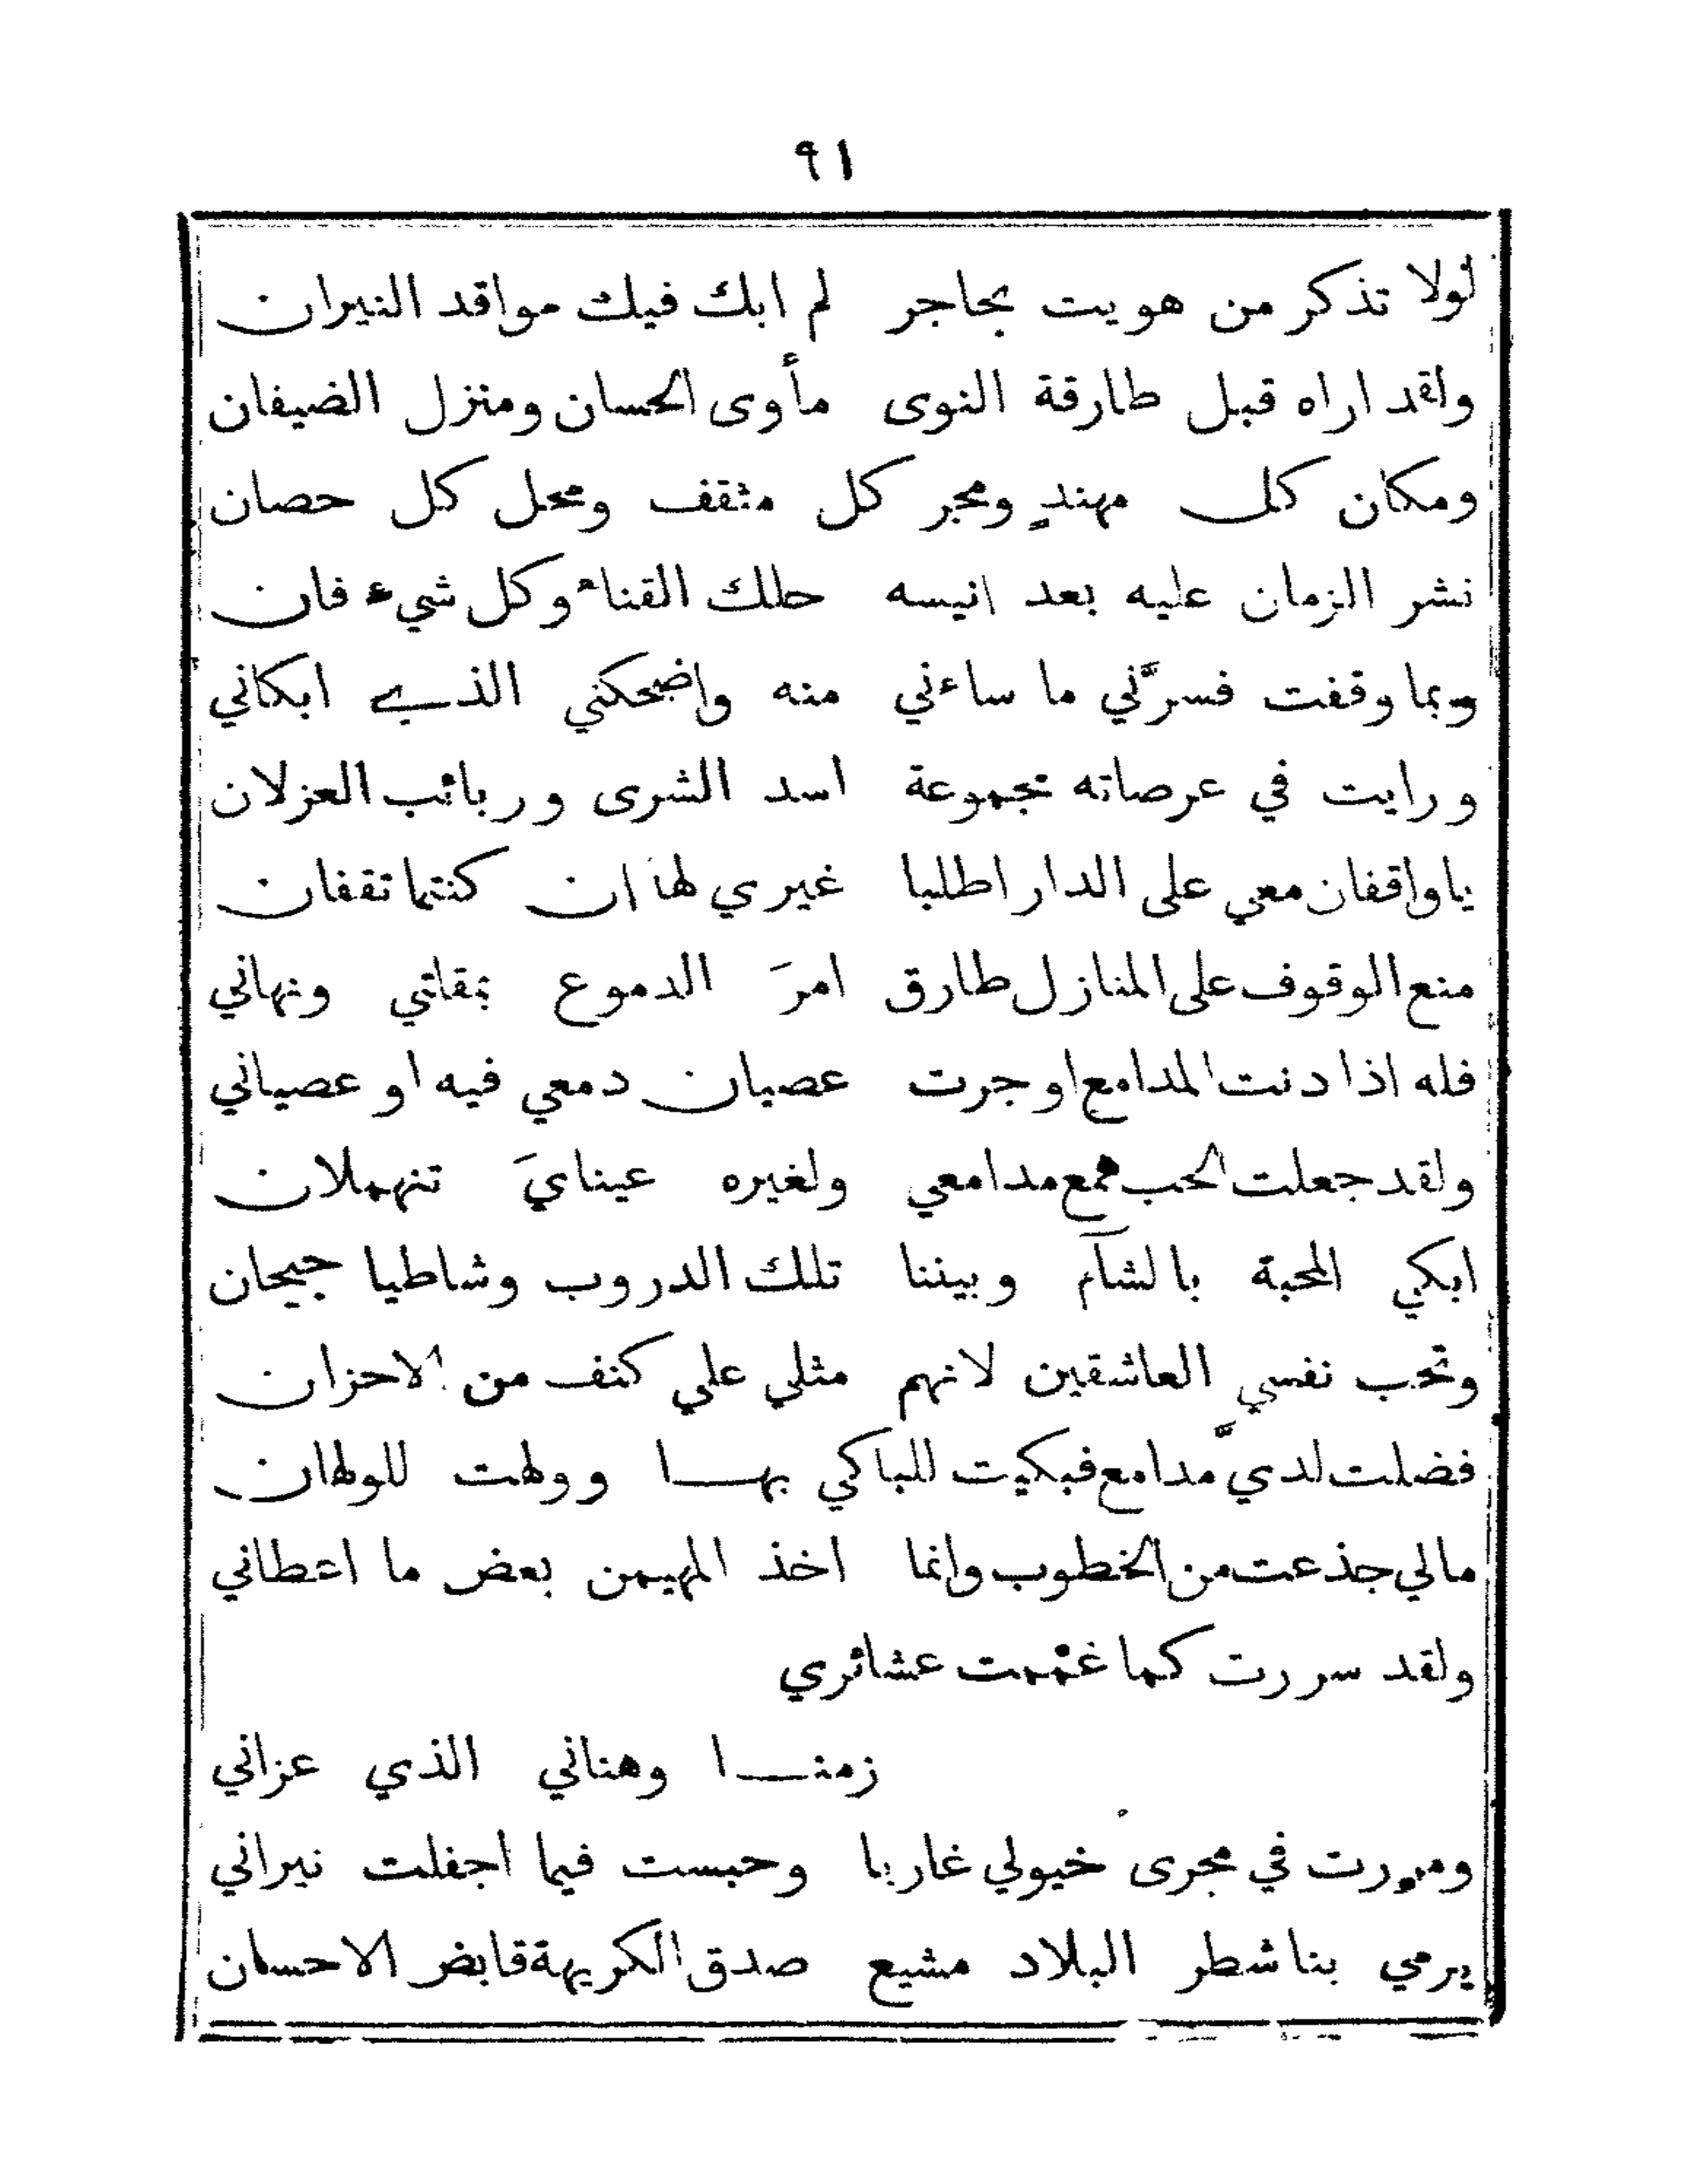 ٩١
لولا تذكر من هويت بحاجر لم ابك فيك مواقد النيران
ولقد اراه قبل طارقة النوى مأوى الحسان ومنزل الضيفان
ومكان كل مهندٍ ومجر كل مثقف ومحل كل حصان
نشر الزمان عليه بعد انيسه حلل الفناء وكل شيء فان
وبما وقفت فسرَّني ما ساءني منه واضحكني الذي ابكاني
ورايت في عرصاته مجموعة اسد الشرى وربائب العزلان
ياواقفان معي على الدار اطلبا غيري لها ان كنتما تقفان
منع الوقوف على المنازل طارق امرَ الدموع بمقلتي ونهاني
فله اذا دنت المدامع او جرت عصيان دمعي فيه او عصياني
ولقد جعلت الحب مجمع مدامعي ولغيره عينايَ تنهملان
ابكي المحبة بالشآم وبيننا تلك الدروب وشاطيا جيحان
وتحب نفسي العاشقين لانهم مثلي علي كنف من الاحزان
فضلت لديَّ مدامع فبكيت للباكي بهـا وولهت للولهان
مالي جذعت من الخطوب وانما اخذ المهيمن بعض ما اعطاني
ولقد سررت كما غممت عشائري
زمنـا وهناني الذي عزاني
ومررت في مجرى خيولي غاربا وحبست فيما اجفلت نيراني
يرمي بنا شطر البلاد مشيع صدق الكريهة قابض الاحسان